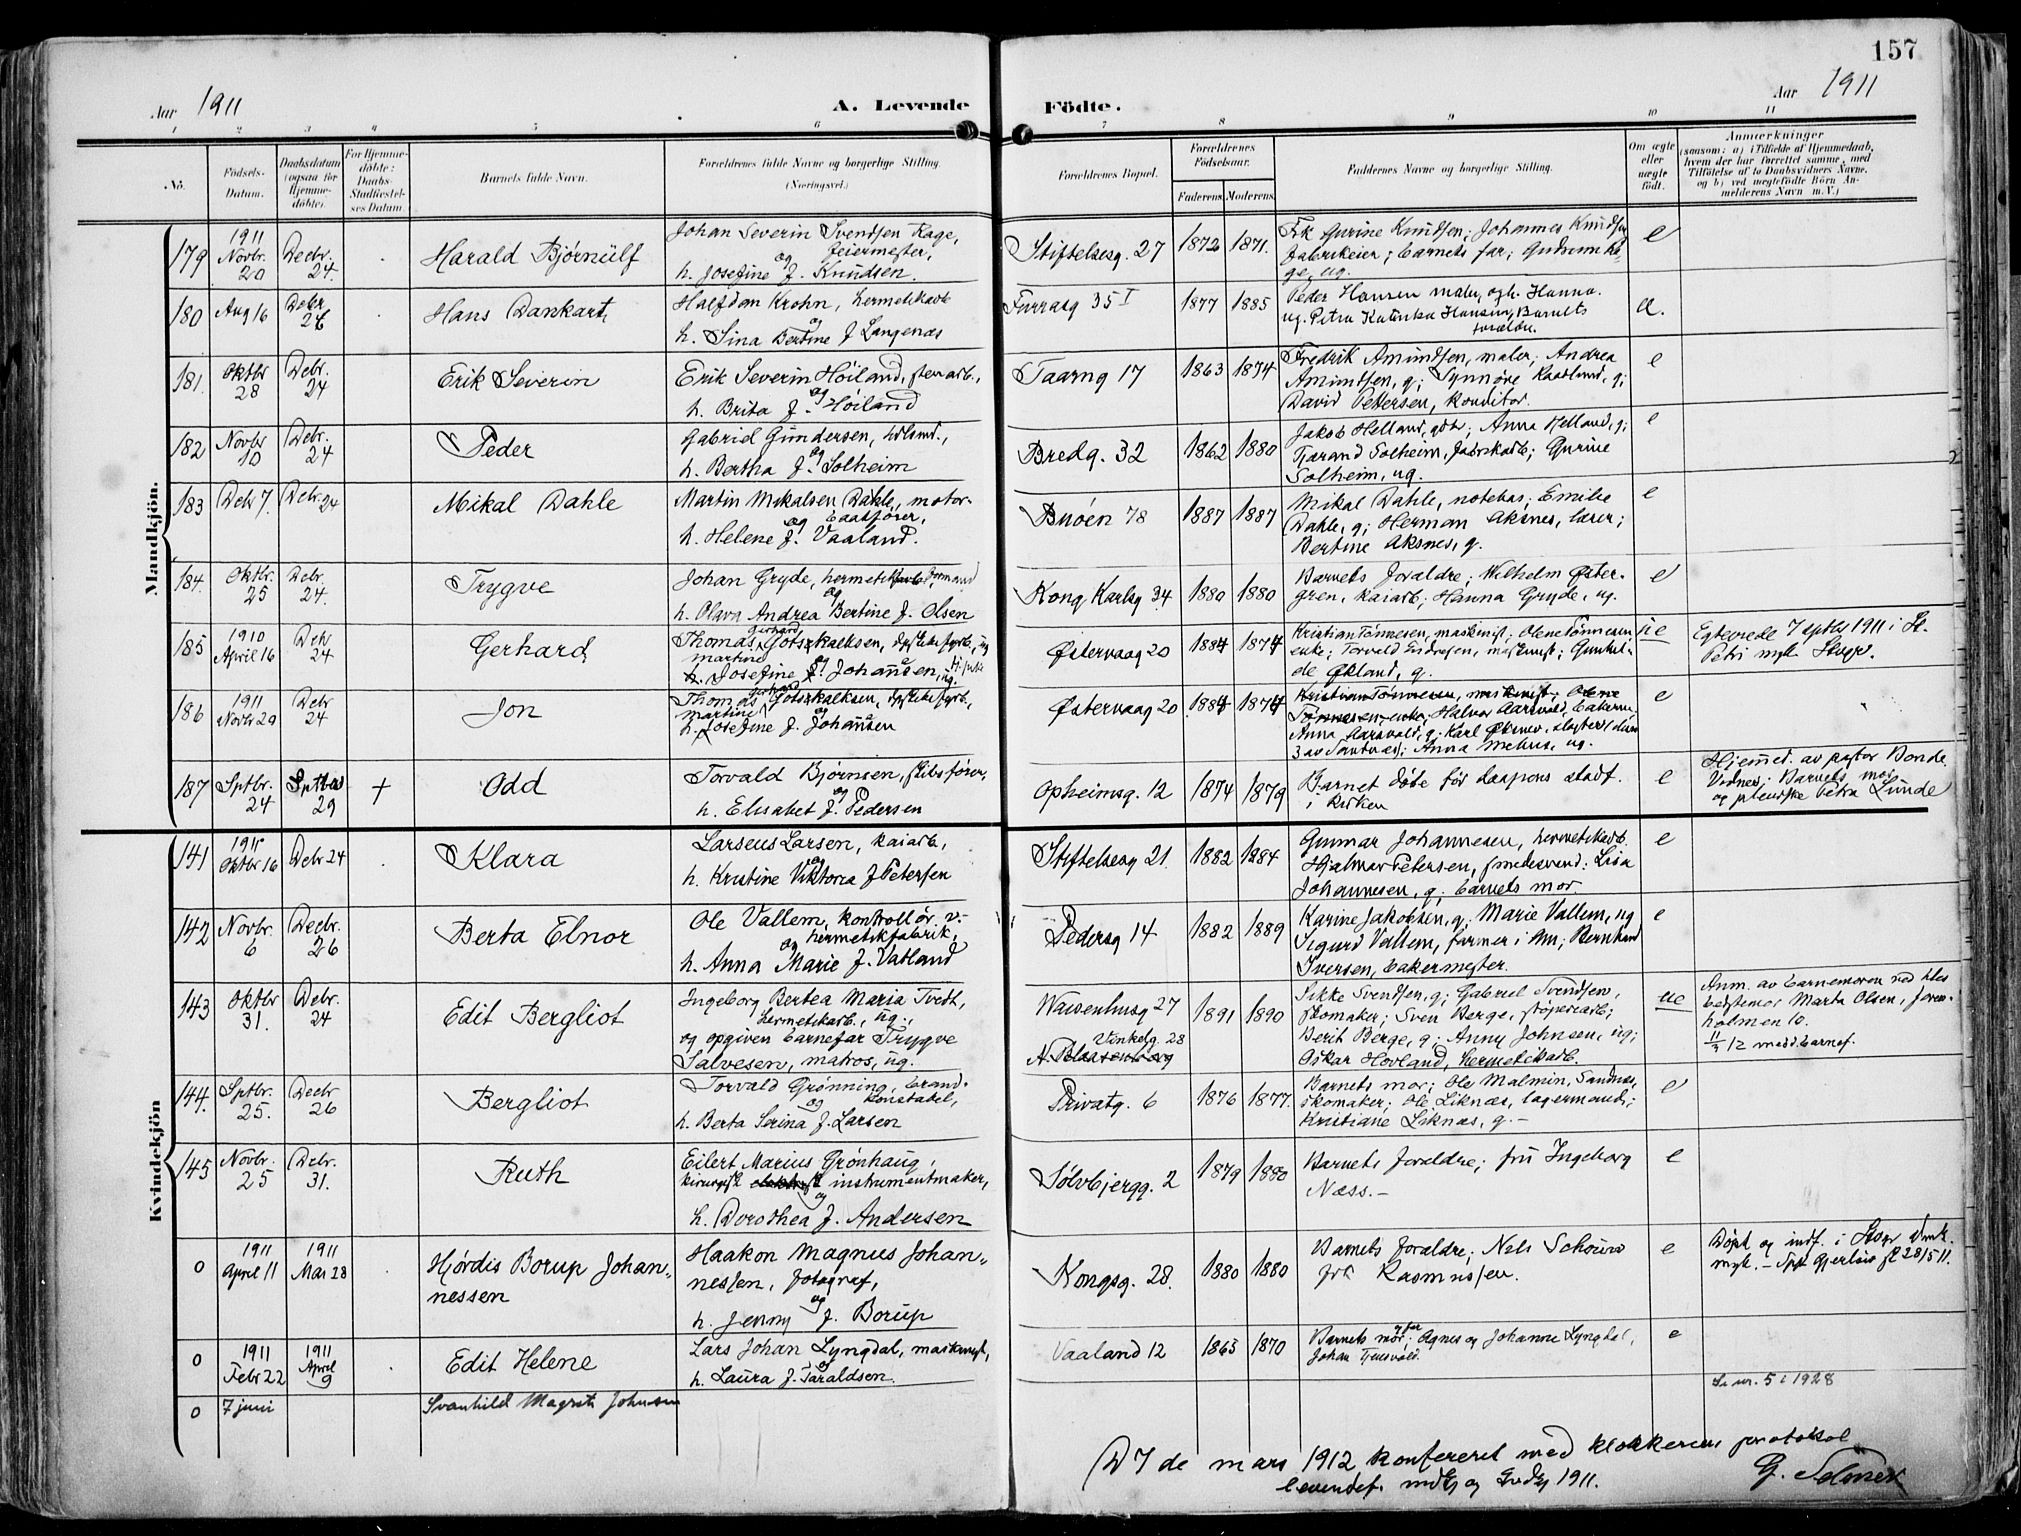 157
Aar 1911
A. Levende Födte.
Aar 1911
1 2 3 4 5 6 7 8 9 10 11
No.
Fødsels-
Datum.
Daabsdatum
(ogsaa for
Hjemme-
døbte).
For Hjemme-
døbte:
Daabs-
Stadfæstel-
ses Datum.
Barnets fulde Navn.
Forældrenes fulde Navne og borgerlige Stilling.
(Næringsvei.)
Forældrenes Bopæl.
Forældrenes
Fødselsaar.
Faderens.
Moderens.
Faddernes Navne og borgerlige Stilling.
Om ægte
eller
uægte
født.
Anmærkninger
(saasom: a) i Tilfælde af Hjemmedaab,
hvem der har forrettet samme, med
Tilføielse af to Daabsvidners Navne,
og b) ved uægtefødte Börn An-
melderens Navn m. V.)
Mandkjön.
179
1911
Novbr.
20
Decbr.
24.
Harald Bjørnülf
Johan Severin Svendsen Kage,
feiermester,
og
h. Josefine f. Knudsen.
Stiftelsesg. 27
1872
1871.
Frk Gurine Knudsen; Johannes Knudsen
fabrikeier; barnets far; Gudrun Ka-
ge, ug.
e
180
Aug 16
Debr
26
Hans Dankart
Halfdan Krohn, hermetikarb
og
h. Sina Bertine f Langenæs
Furrasg 35 I
1877
1885
Peder Hansen maler, og h. Hanna.
ug. Petra Katinka Hansen, Barnets
forældre.
e.
181.
Oktbr
28
Debr.
24
Erik Severin
Erik Severin Höiland, stenarb.,
og
h. Brita f. Höiland
Taarng 17
1863
1874
Fredrik Amundsen, maler; Andrea
Amundsen, g; Synnöve Kaasland, g;
David Pettersen, konditor.
e
182
Novbr
10
Debr.
24
Peder
Gabriel Gundersen,
og
h. Bertha f. Solheim
Bredg. 32
1862
1880
Jakob Helland, ; Anna Helland, g;
Tjarand Solheim, fabrikarb; Gurine
Solheim, ug.
e
183
Debr 7.
Debr. 24
Mikal Dahle
Martin Mikalsen Dahle, motor-
baatfører,
og
h. Helene f. Vaaland.
Buöen 78
1887
1887
Mikal Dahle, notebas; Emilie
Dahle, g; Herman Aksnes, lærer;
Bertine Aksnes, g.
e
184.
Oktbr.
25
Debr.
24.
Trygve
Johan Gryde, hermetikfarb.formand
og
h. Olava Andrea Bertine f. Olsen
Kong Karlsg 34
1880
1880
Barnets foraldre; Wilhelm Öster-
gren, kaiarb; Hanna Gryde, ug.
e
185
1910
April 16
Debr
24
Gerhard
Gerhard
Thomas Gotskalksen, , ug
Martine
h. Josefine f. Johannsen
Østervaag 20
1884
1874
Kristian Tönnesen, maskinist; Olene Tönnesen,
enke; Torvald Endresen, maskinist; Gunhil-
de Økland, g.
ue
Egteviede 7 sptbr 1911 i St.
Petri mgh Stvgr.
186
1911
Novbr 29
Debr
24
Jon
Gerhard
Thomas Gotskalksen,
Martine og
h. Josefine f. Johansen
Østervaag 20
1884
1874
Kristian Tönnesen, maskinist; Olene
Tönnesen, enke; Halvor Aarsvold, bakerm,
Anna Aarsvold, g; Karl Økner,
3 av Sandnes; Anna Mehus, ug.
e
187
Sptbr.
24
Sptbr
29
+
Odd
Torvald Bjørnsen, skibsfører,
og
h. Elisabet f. Pedersen
Opheimsg. 12
1874
1879
Barnet döde för daapens stadf.
i kirken
e
Hjemmed. av pastor Bonde.
Vidner: Barnets mor
og pleierske Petra Lunde
Kvindekjön
141
1911
Oktbr 16
Debr 24
Klara
Larseus Larsen, kaiarb,
og
h. Kristine Viktoria f Petersen
Stiftelsesg 21
1882
1884
Gunnar Johannesen, hermetikarb.
Hjalmar Petersen, smedesvend: Lisa
Johannesen, g; barnets mor
e
142
Novbr.
6
Decbr.
26
Berta Elnor
Ole Vallem, kontrollör v.
hermetikfabrik,
og
h. Anna Marie f. Vatland
Pedersg 14
1882
1889
Karine Jakobsen, g; Marie Vallem, ug
Sigurd Vallem, farmer i Am; Bernhard
Iversen, bakermester.
e
143
Oktbr
31.
Debr.
24
Edit Bergliot
Ingeborg Bertea Maria Tvedt,
hermetikarb., ug.,
og opgiven barnefar Trygve
Salvesen, matros, ug.
Waisenhusg 27
Vinkelg. 28
N. Blaasenborg
1891
1890
Sikke Svendsen, g; Gabriel Svendsen,
skomaker; Sven Berge, støperiarb;
Berit Berge, g; Anny Johnsen, ug;
Oskar Hovland, hermetikarb.
ue
Anm. av barnemoren ved hdes
bedstemor Marta Olsen, Joren-
holmen 10.
11/3 12 medd. barnef.
144.
Sptbr.
25.
Decbr
26
Bergliot
Torvald Grønning, brand-
konstabel,
og
h. Berta Serina f. Larsen
Privatg. 6
1876
1877.
Barnets mor; Ole Malmin, Sandnes,
skomaker; Ole Liknæs, lagermand;
Kristiane Liknæs, g.-
e
145
Novbr.
25
Debr.
31.
Ruth
Eilert Marius Grønhaug,
kirurgisk instrumentmaker,
og
h. Dorothea f. Andersen
Sølvbjergg. 2
1879
1880
Barnets foraldre; fru Ingeborg
Næss.-
e
0
1911
April 11
1911
Mai 28
Hjördis Borup Johan-
nessen
Haakon Magnus Johan-
nessen, fotograf,
og
h. Jenny f. Borup
Kongsg. 28.
1880
1880
Barnets foraldre; Nels Schouw
frk Rasmussen.
e
Döpt og indf. i Stvgr Dmk.
mgh. - 28/5 11.
0
1911
Febr 22
1911
April
9
Edit Helene
Lars Johan Lyngdal, maskinist,
og
h. Laura f. Taraldsen.
Vaaland 12
1863
1870
Barnets mor og far; Agnes og Johanne Lyngdal,
Johan Tjensvold.
e
0
7 juni
Svanhild Magrete Johnsen
Se nr. 5 i 1928
D 7 de mars 1912 konfereret med klokkerens protokol
levendef. mdkj og kvdkj 1911.
G. Selmer